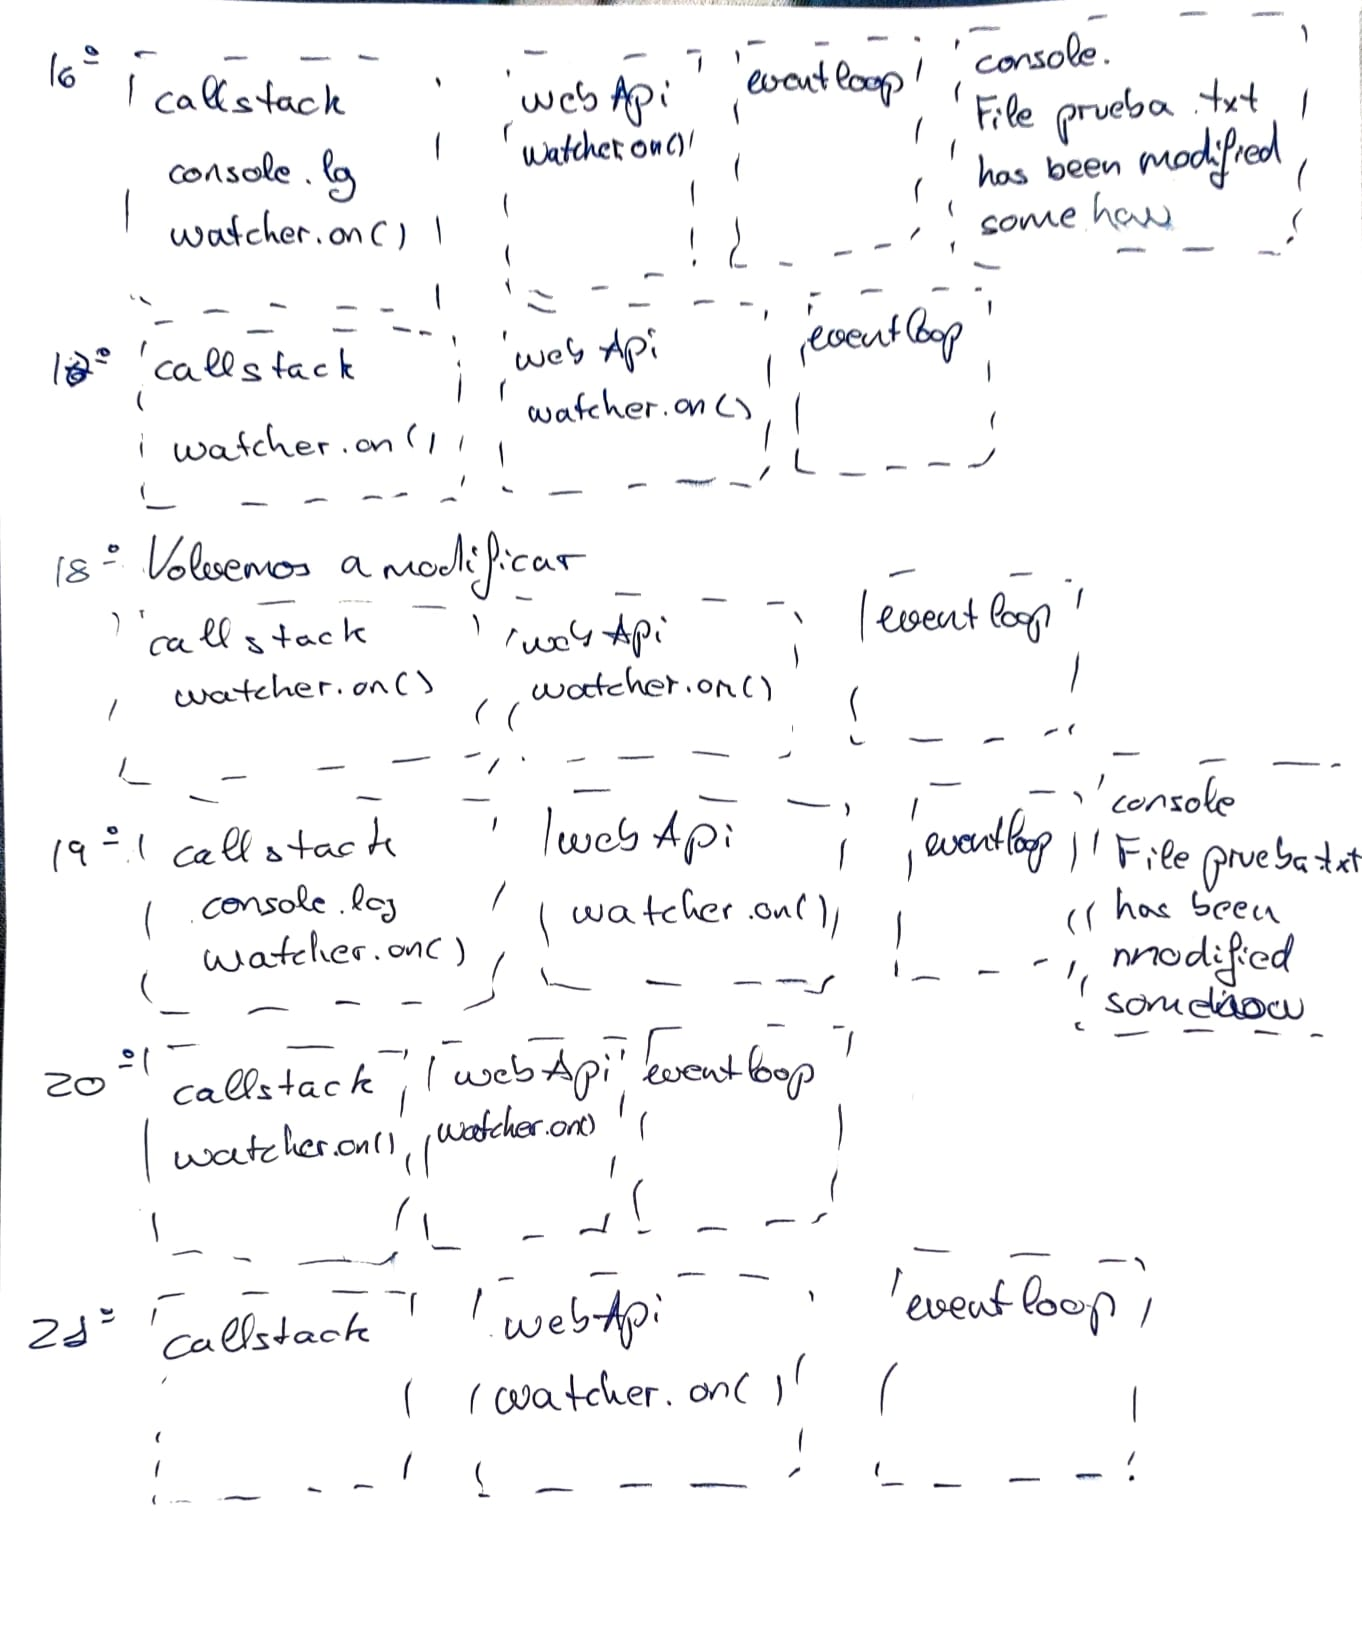 16º callstack
console.lg
watcher.on()
web Api
watcher on()
event loop
console.
File prueba .txt
has been modified
some how
callstack
watcher.on()
web Api
watcher.on()
event loop
18º Volvemos a modificar
callstack
watcher.on()
web Api
watcher.on()
event loop
19º callstack
console.log
watcher.on()
web Api
watcher.on()
event loop
console
File prueba txt
has been
modified
20º callstack
watcher.on()
web Api
watcher.on()
event loop
21º callstack
web Api
watcher.on()
event loop